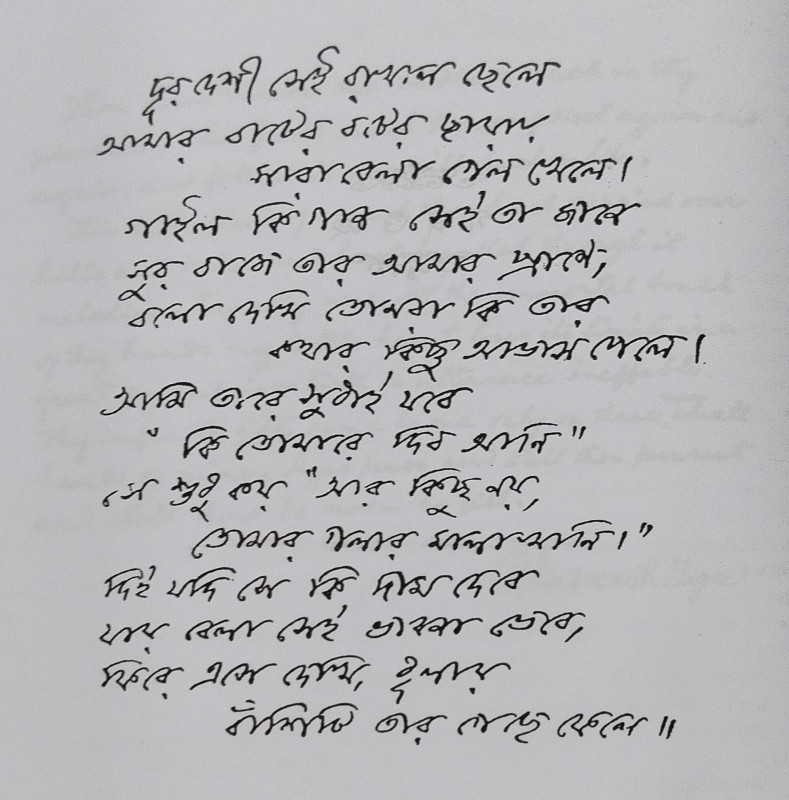 দূরদেশী সেই রাখাল ছেলে
আমার বাটের বটের ছায়ায়
সারা বেলা গেল খেলে।
গাইল কি গান সেই তা জানে
সুর বাজে তার আমার প্রাণে;
বলো দেখি তোমরা কি তার
কথার কিছু আভাস পেলে।
আমি তারে সুধাই যবে
"কি তোমারে দিব আনি"
সে শুধু কয় "আর কিছু নয়,
তোমার গলার মালাখানি।"
দিই যদি সে কি দাম দেবে
যায় বেলা সেই ভাবনা ভেবে;
ফিরে এসে দেখি, ধূলায়
বাঁশিটি তার গেছে ফেলে॥